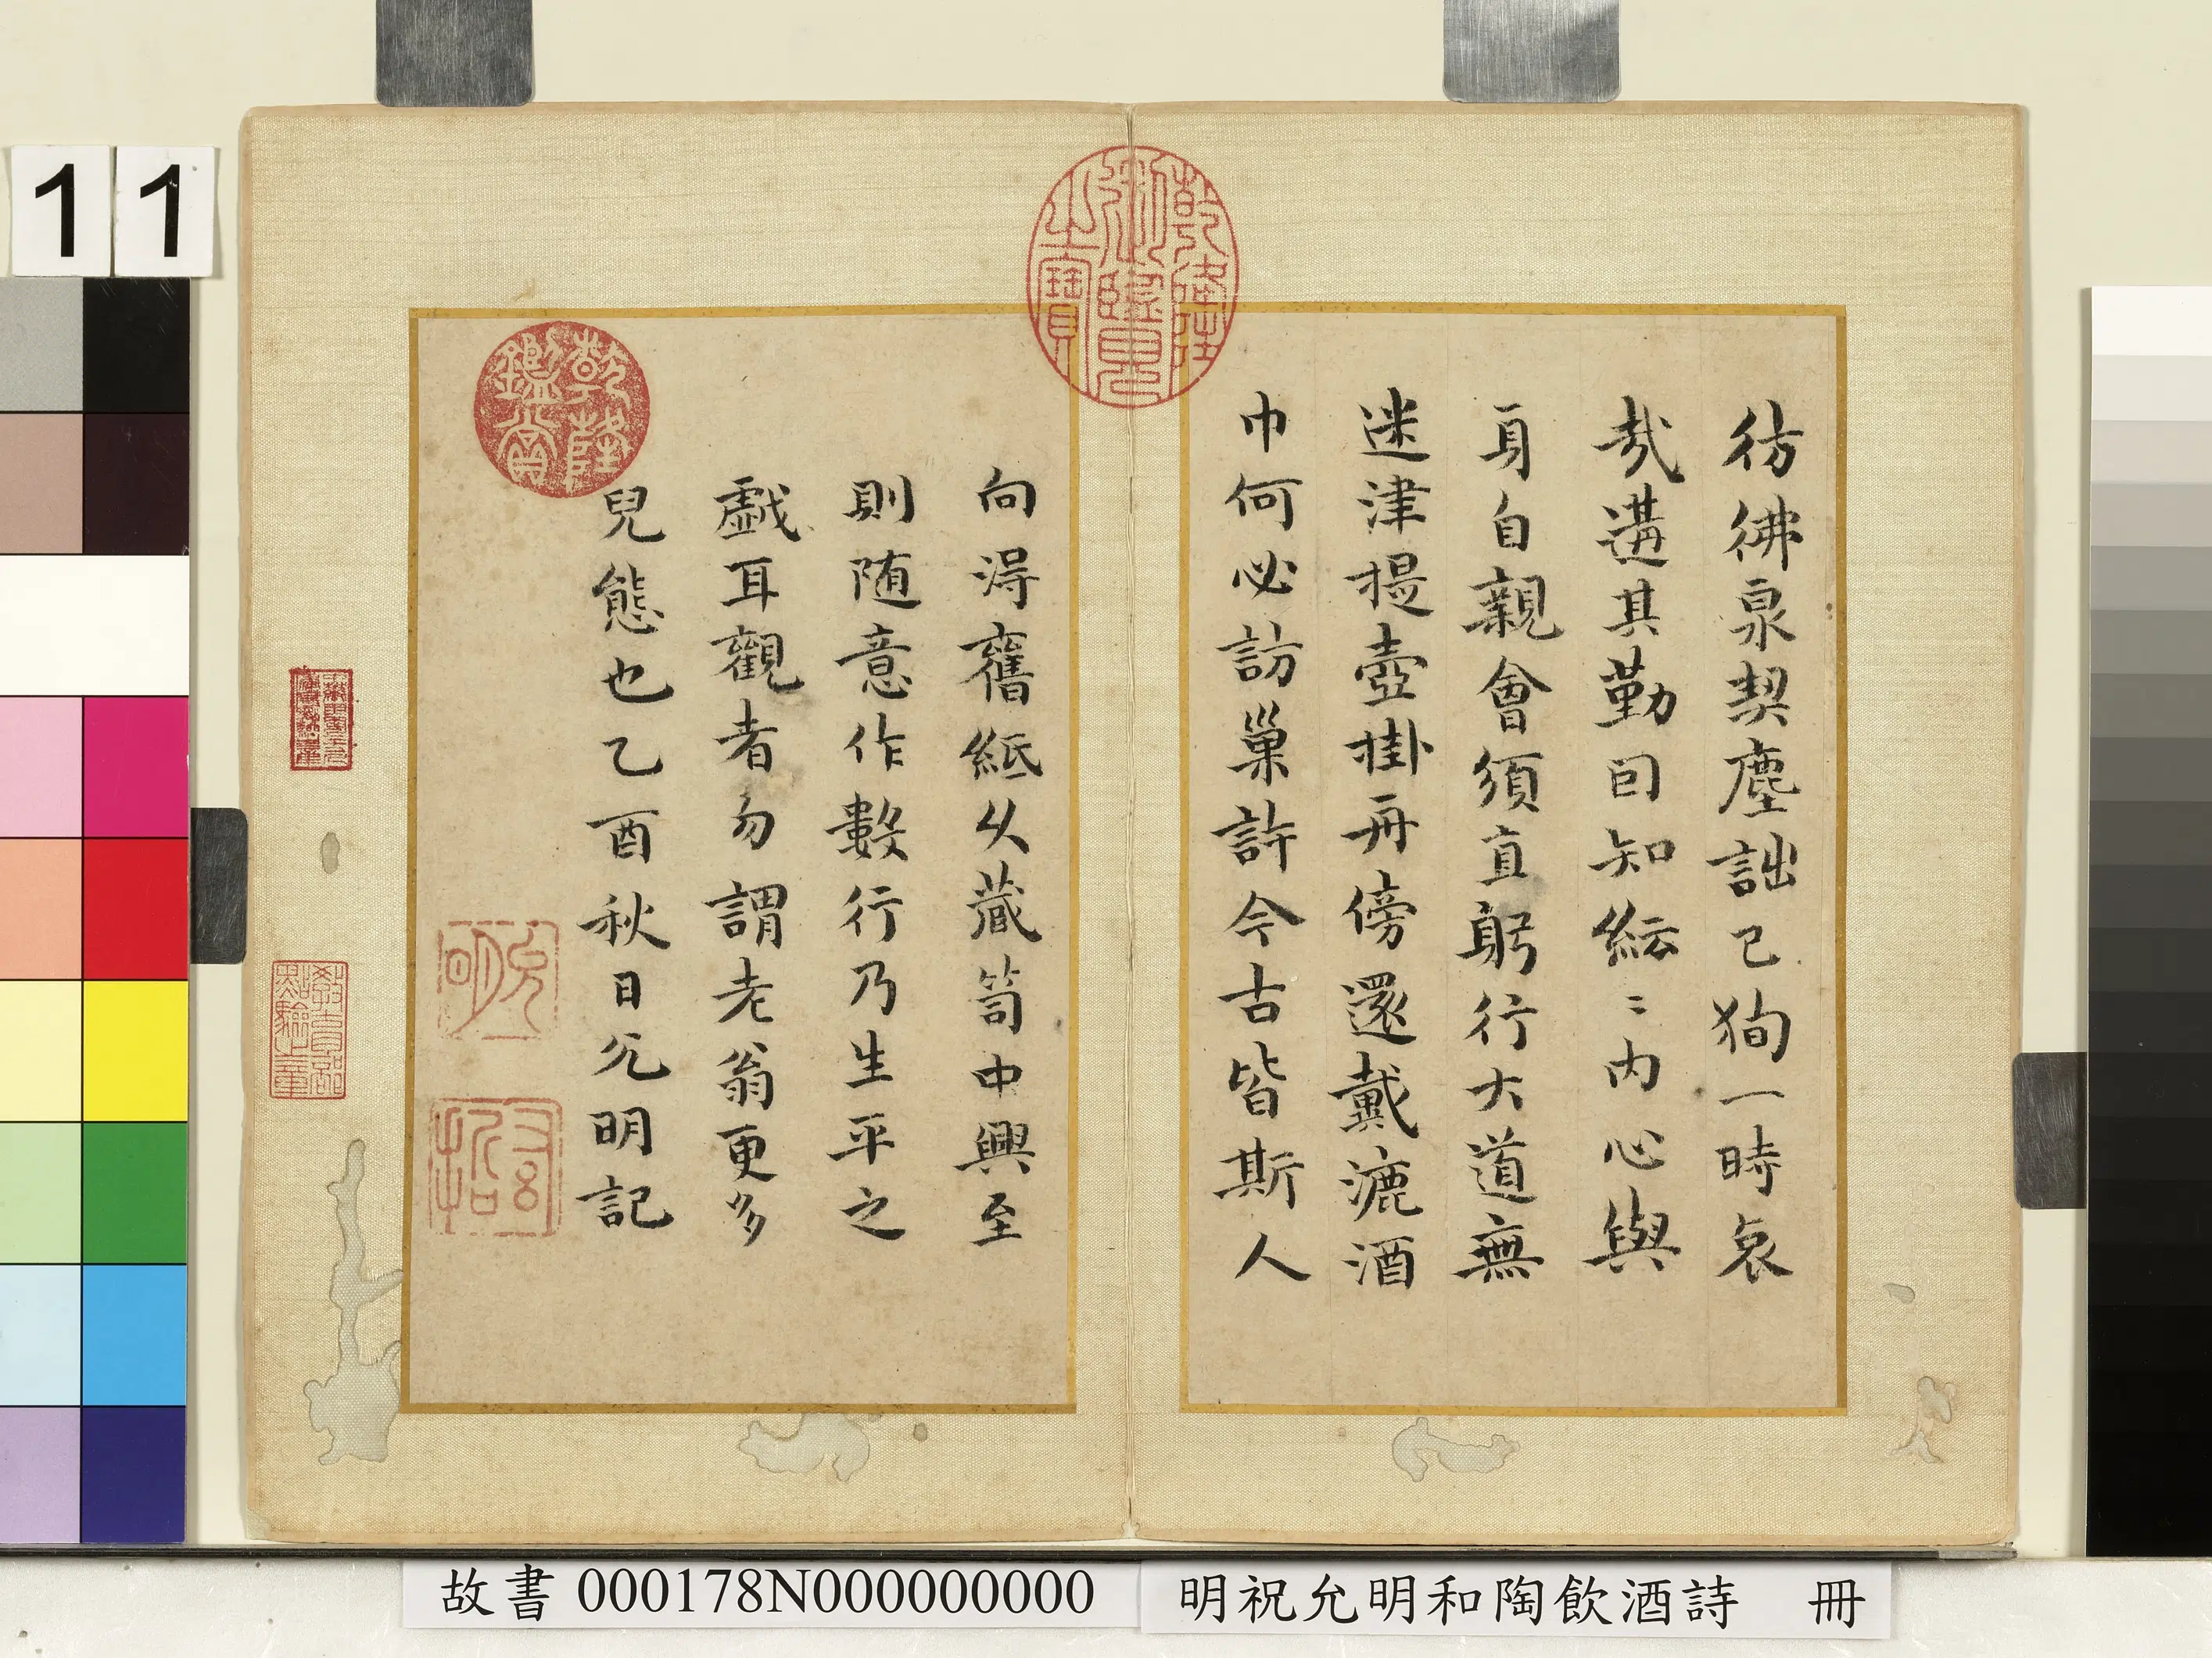 彷彿泉契塵詘己狥一時哀
哉遘其勤囙知紜〻內心與
身自親會須直躬行大道無
迷津提壺掛舟傍還戴漉酒
巾何必訪巢許今古皆斯人
向淂舊紙久藏笥中興至
則随意作數行乃生平之
戲耳觀者勿謂老翁更多
兒態也乙酉秋日允明記
乾隆御覽之寶
乾隆鑑賞
允明
11
故書 000178N000000000
明祝允明和陶飲酒詩 冊